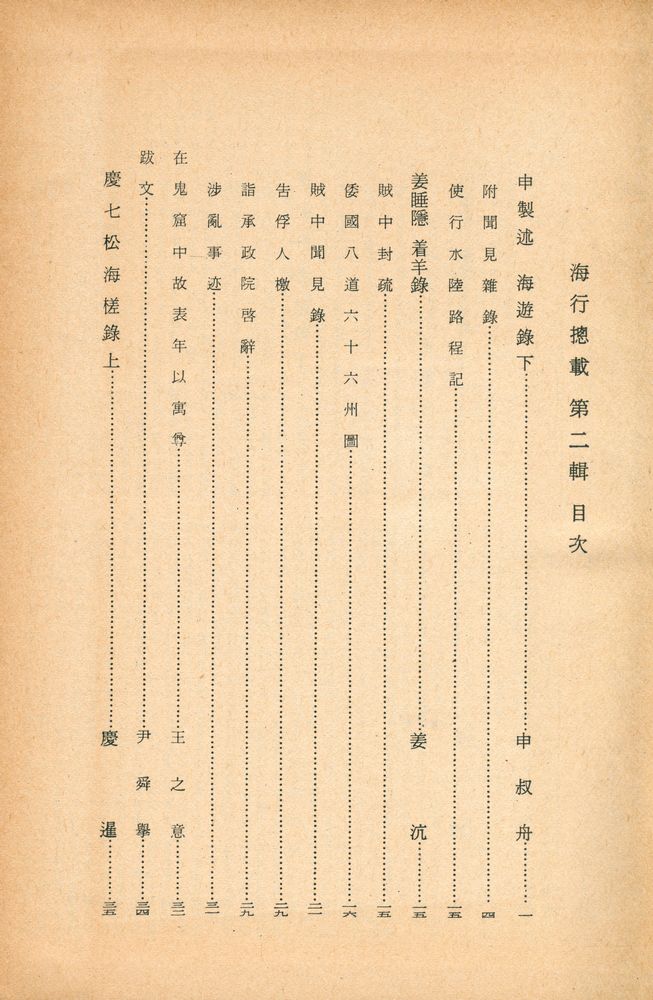 海行摠載 第二輯 目次
申製述 海遊錄下 申叔舟 一
附聞見雜錄 四
使行水陸路程記 一五
姜睡隱 着羊錄 姜沆 一五
賊中封疏 一五
倭國八道六十六州圖 一六
賊中聞見錄 二一
告俘人檄 二九
詣承政院啓辭 二九
涉亂事迹 三一
在鬼窟中故表年以寓尊 王之意 三三
跋文 尹舜擧 三四
慶七松海槎錄上 慶暹 三五